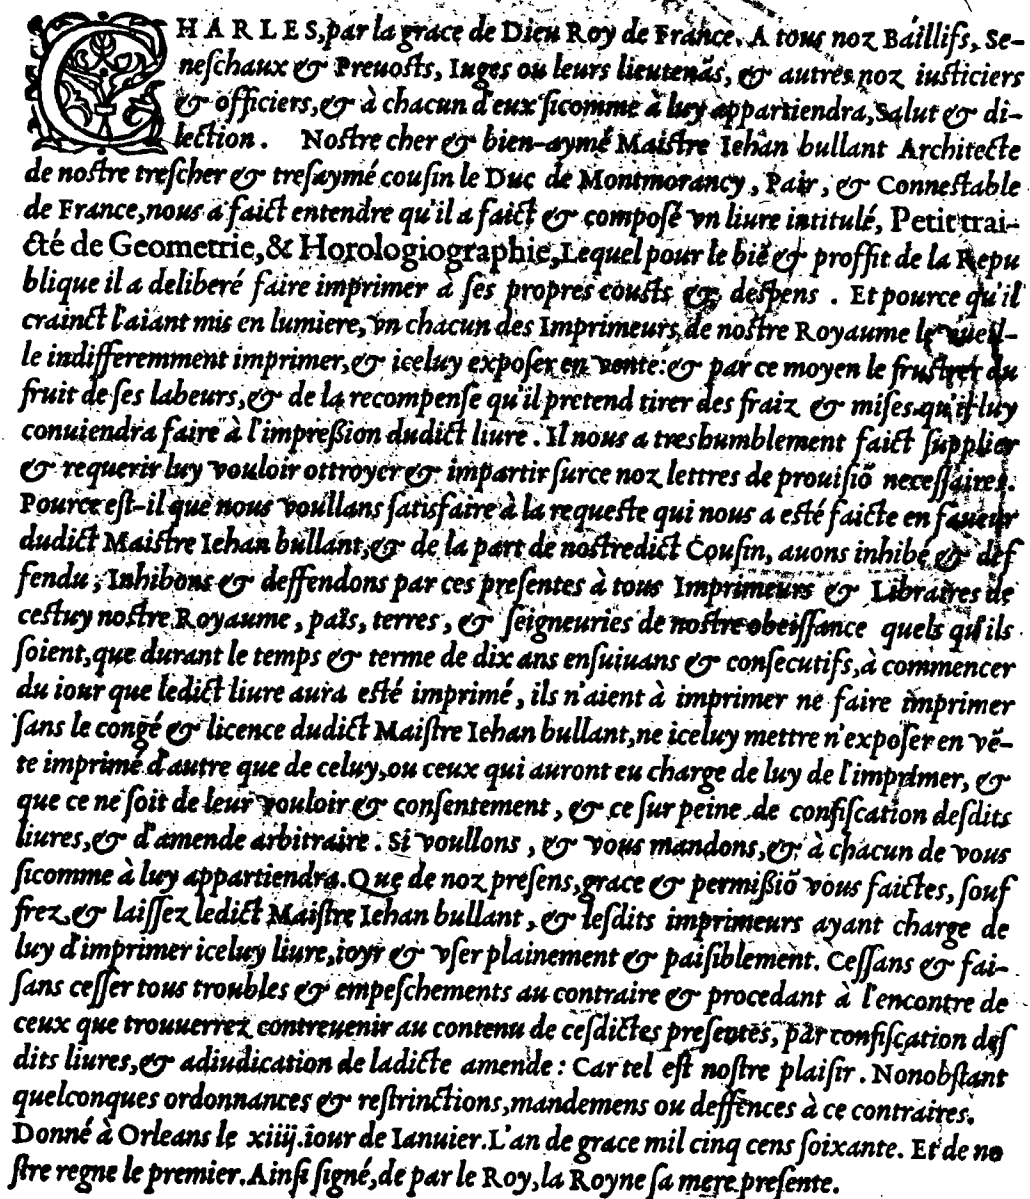 CHARLES, par la grace de Dieu Roy de France. A tous noz Baillifs, Se-
neſchaux & Preuoſts, Iuges ou leurs lieutenãs, & autres noz iuſticiers
& officiers, & à chacun d'eux ſicomme à luy appartiendra, Salut & di-
lection. Noſtre cher & bien-aymé Maiſtre Iehan bullant Architecte
de noſtre treſcher & treſaymé couſin le Duc de Montmorancy, Pair, & Conneſtable
de France, nous a faict entendre qu'il a faict & compoſé vn liure intitulé, Petit trai-
cté de Geometrie, & Horologiographie, Lequel pour le biẽ & proffit de la Repu
blique il a deliberé faire imprimer à ſes propres couſts & deſpens. Et pource qu'il
crainct l'aiant mis en lumiere, vn chacun des Imprimeurs de noſtre Royaume le vueil-
le indifferemment imprimer, & iceluy expoſer en vente: & par ce moyen le fruſtrer du
fruit de ſes labeurs, & de la recompenſe qu'il pretend tirer des fraiz & miſes qu'il luy
conuiendra faire à l'impreßion dudict liure. Il nous a treshumblement faict ſupplier
& requerir luy vouloir ottroyer & impartir ſurce noz lettres de prouiſiõ neceſſaires.
Pource eſt-il que nous voullans ſatisfaire à la requeſte qui nous a eſté faicte en faueur
dudict Maiſtre Iehan bullant, & de la part de noſtredict Couſin, auons inhibé & deſ
fendu, Inhibons & deffendons par ces preſentes à tous Imprimeurs & Libraires de
ceſtuy noſtre Royaume, païs, terres, & ſeigneuries de noſtre obeiſſance quels qu'ils
ſoient, que durant le temps & terme de dix ans enſuiuans & conſecutifs, à commencer
du iour que ledict liure aura eſté imprimé, ils n'aient à imprimer ne faire imprimer
ſans le congé & licence dudict Maiſtre Iehan bullant, ne iceluy mettre n'expoſer en vẽ-
te imprimé d'autre que de celuy, ou ceux qui auront eu charge de luy de l'imprimer, &
que ce ne ſoit de leur vouloir & conſentement, & ce ſur peine de confiſcation deſdits
liures, & d'amende arbitraire. Si voullons, & vous mandons, & à chacun de vous
ſicomme à luy appartiendra. Que de noz preſens, grace & permißiõ vous faictes, ſouf
frez & laiſſez ledict Maiſtre Iehan bullant, & leſdits imprimeurs ayant charge de
luy d'imprimer iceluy liure, ioyr & vſer plainement & paiſiblement. Ceſſans & fai-
ſans ceſſer tous troubles & empeſchements au contraire & procedant à l'encontre de
ceux que trouuerrez contreuenir au contenu de ceſdictes preſentes, par confiſcation deſ
dits liures, & adiudication de ladicte amende: Car tel eſt noſtre plaiſir. Nonobſtant
quelconques ordonnances & reſtrinctions, mandemens ou deffences à ce contraires.
Donné à Orleans le xiiij. iour de Ianuier. L'an de grace mil cinq cens ſoixante. Et de no
ſtre regne le premier. Ainſi ſigné, de par le Roy, la Royne ſa mere preſente.